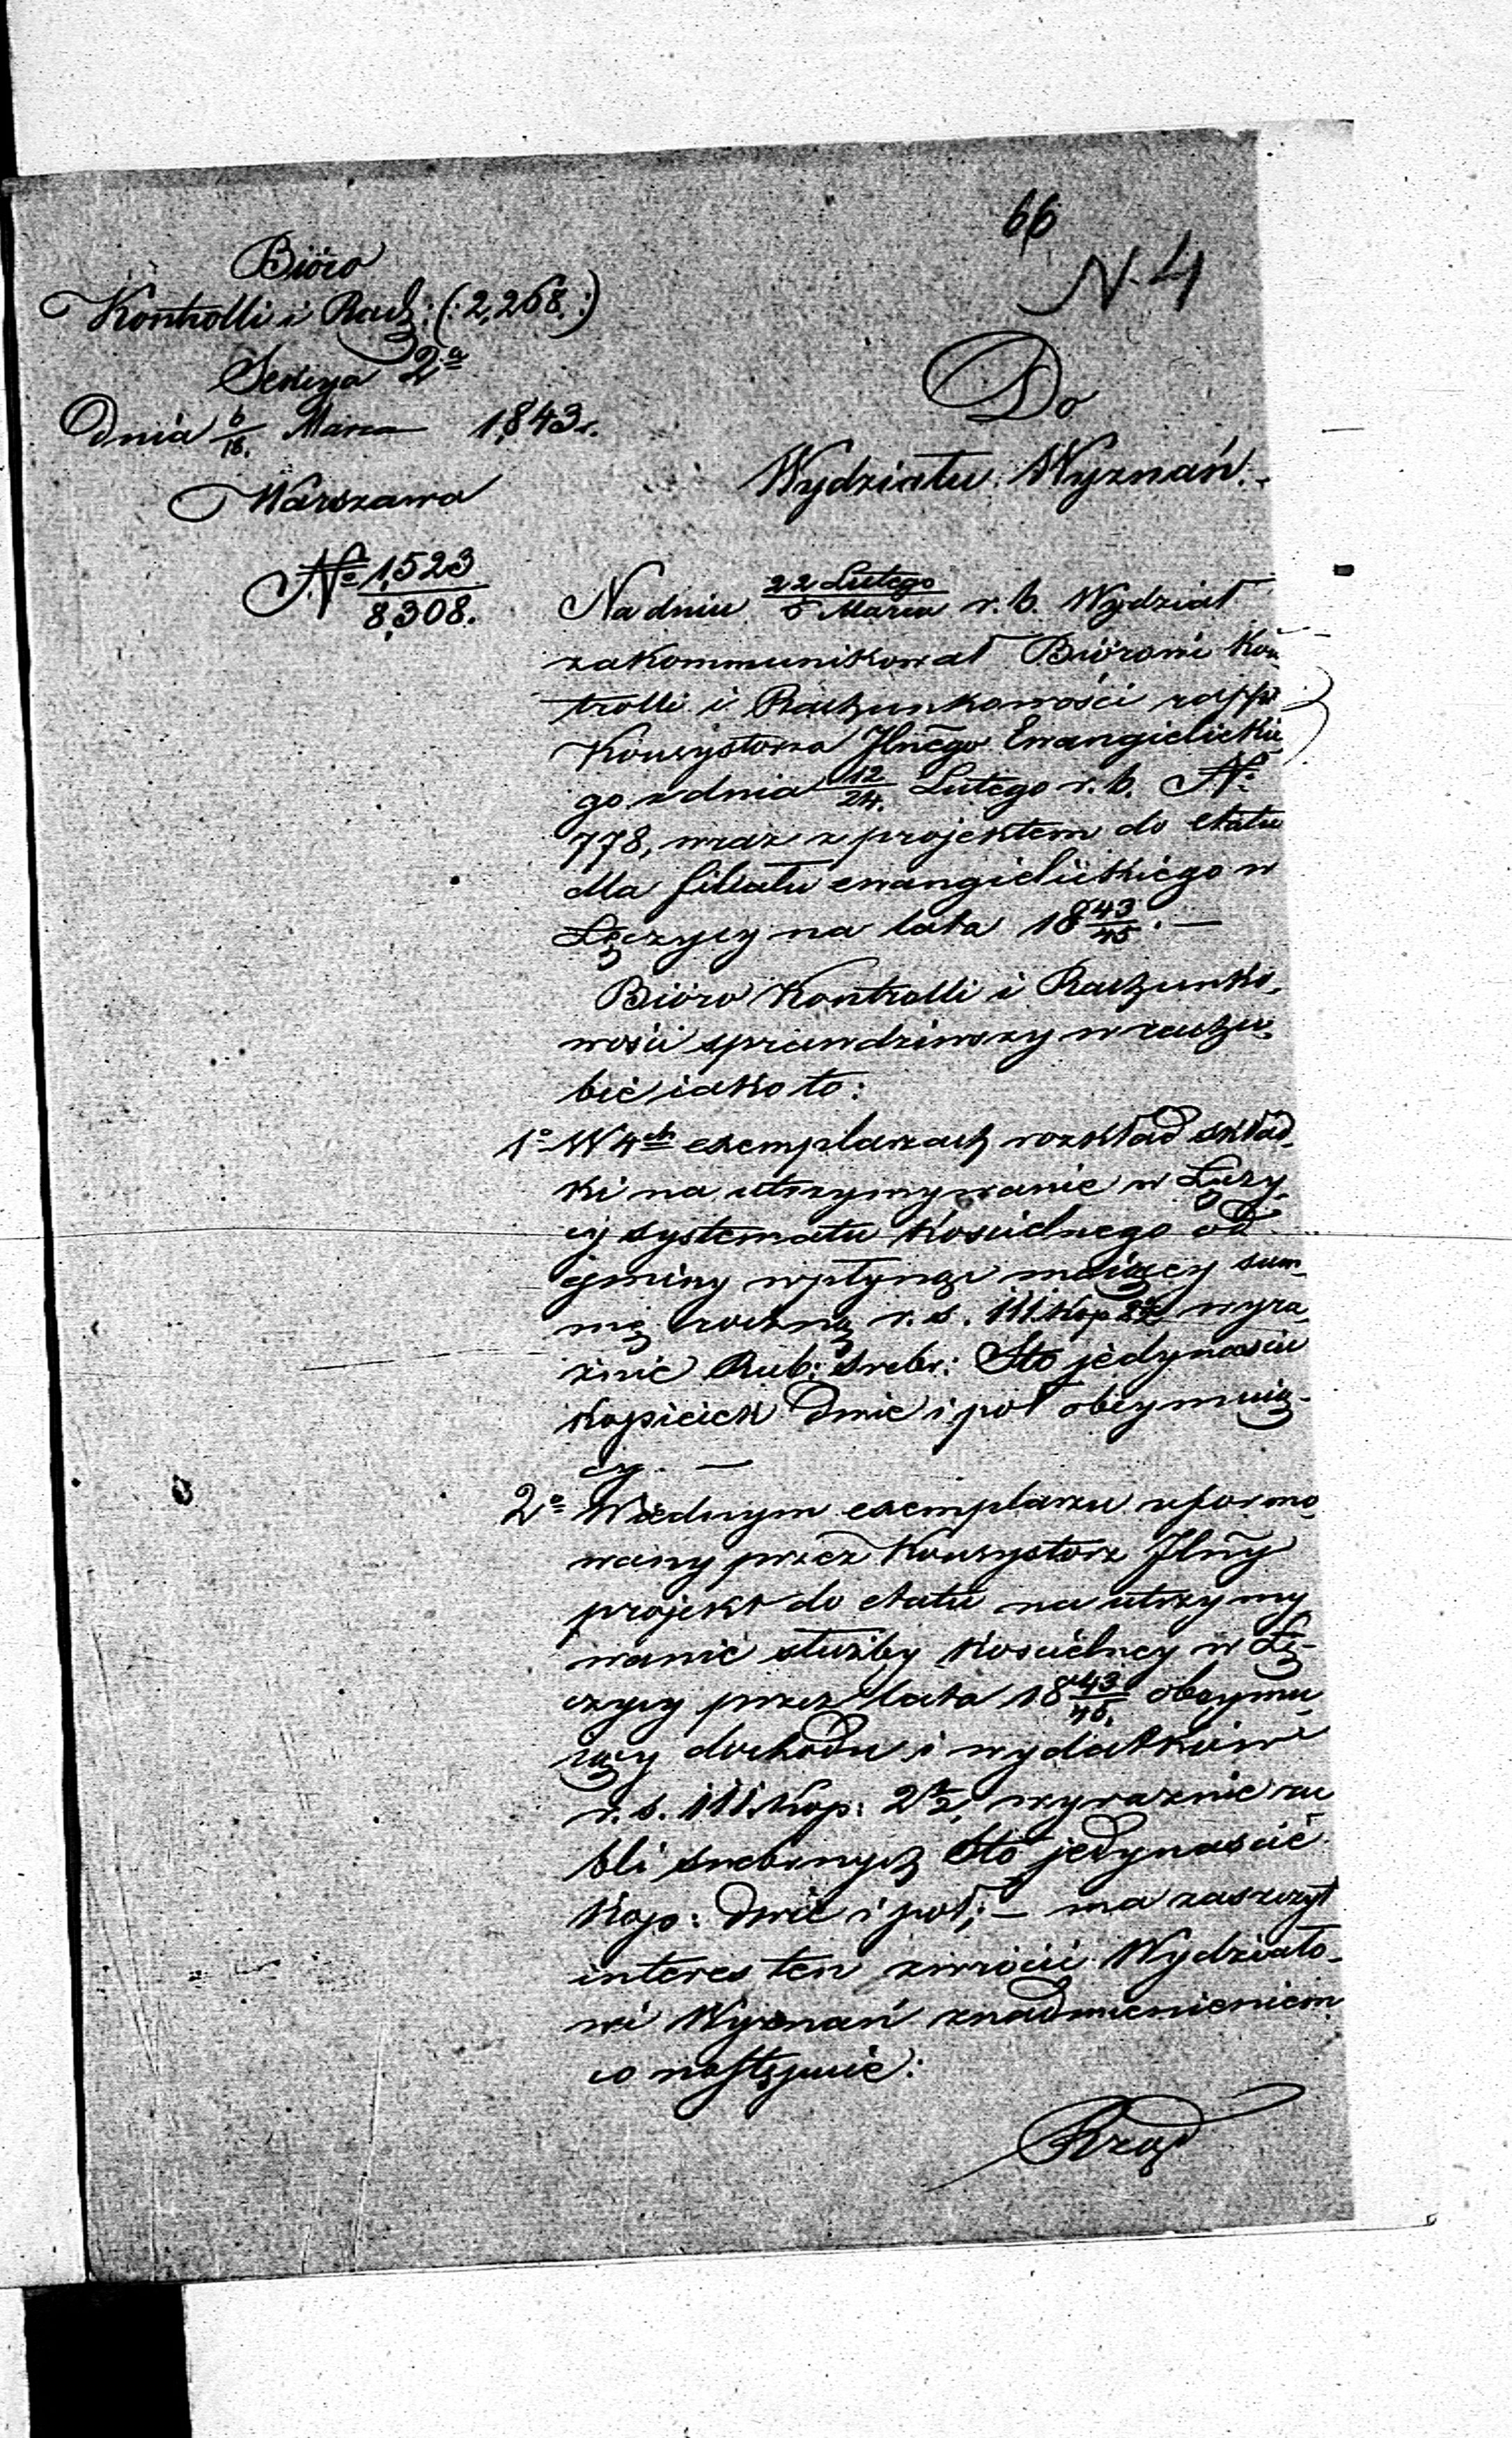 66
N. 4
Bióro
Kontrolli i Rach: (: 2,268. :)
Sekcya 2a
Dnia 6/18. Marca 1843 r.
Warszawa
No 1,523/8,308.
Do
Wydziału Wyznań.
Na dniu 22 Lutego/6 Marca r. b. Wydział
zakommunikował Biórowi Kon
trolli i Rachunkowości rapport
Konsystorza Jlnego Ewangielickie
go z dnia 12/24. Lutego r. b. No
778, wraz z projektem do etatu
dla filiału ewangielickiego w
Łęczycy na lata 1843/45. —
Bióro Kontrolli i Rachunko,
wości sprawdziwszy w rachu,
bie iako to:
1o W 4ch exemplarzach rozkład skład,
ki na utrzymywanie w Łęczy,
cy systematu kościelnego od
gminy wpłynąć maiącey sum,
mę roczną r. s. 111. kop 2½ wyra,
źnie Rub: Srebr: Sto jedynaście
Kopieiek dwie i pół obeymuią-
cy. —
2o W iednym exemplarzu uformo,
wany przez Konsystorz Jlny
projekt do etatu na utrzymy
wanie służby kościelney w Łę-
czycy przez lata 1843/45. obeymu,
iący dochodu i wydatków
r. s. 111. kop: 2½, wyraźnie ru
bli srebrnych Sto jedynaście
kop: dwie i pół; — ma zaszczyt
interes ten zwrócić Wydziało-
wi Wyznań z nadmienieniem
co następuie:
Rząd